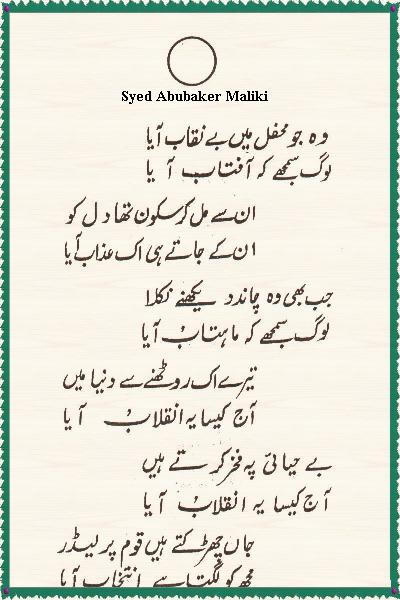 Syed Abubaker Maliki
وہ جو محفل میں بے نقاب آیا
لوگ سمجھے کہ آفتاب آیا
ان سے مل کر سکون تھا دل کو
ان کے جاتے ہی اک عذاب آیا
جب بھی وہ چاند دیکھنے نکلا
لوگ سمجھے کہ ماہتاب آیا
تیرے اک روٹھنے سے دنیا میں
آج کیسا یہ انقلاب آیا
بے حیائی پہ فخر کرتے ہیں
آج کیسا یہ انقلاب آیا
جاں چھڑکتے ہیں قوم پر لیڈر
مجھ کو لگتا ہے انتخاب آیا